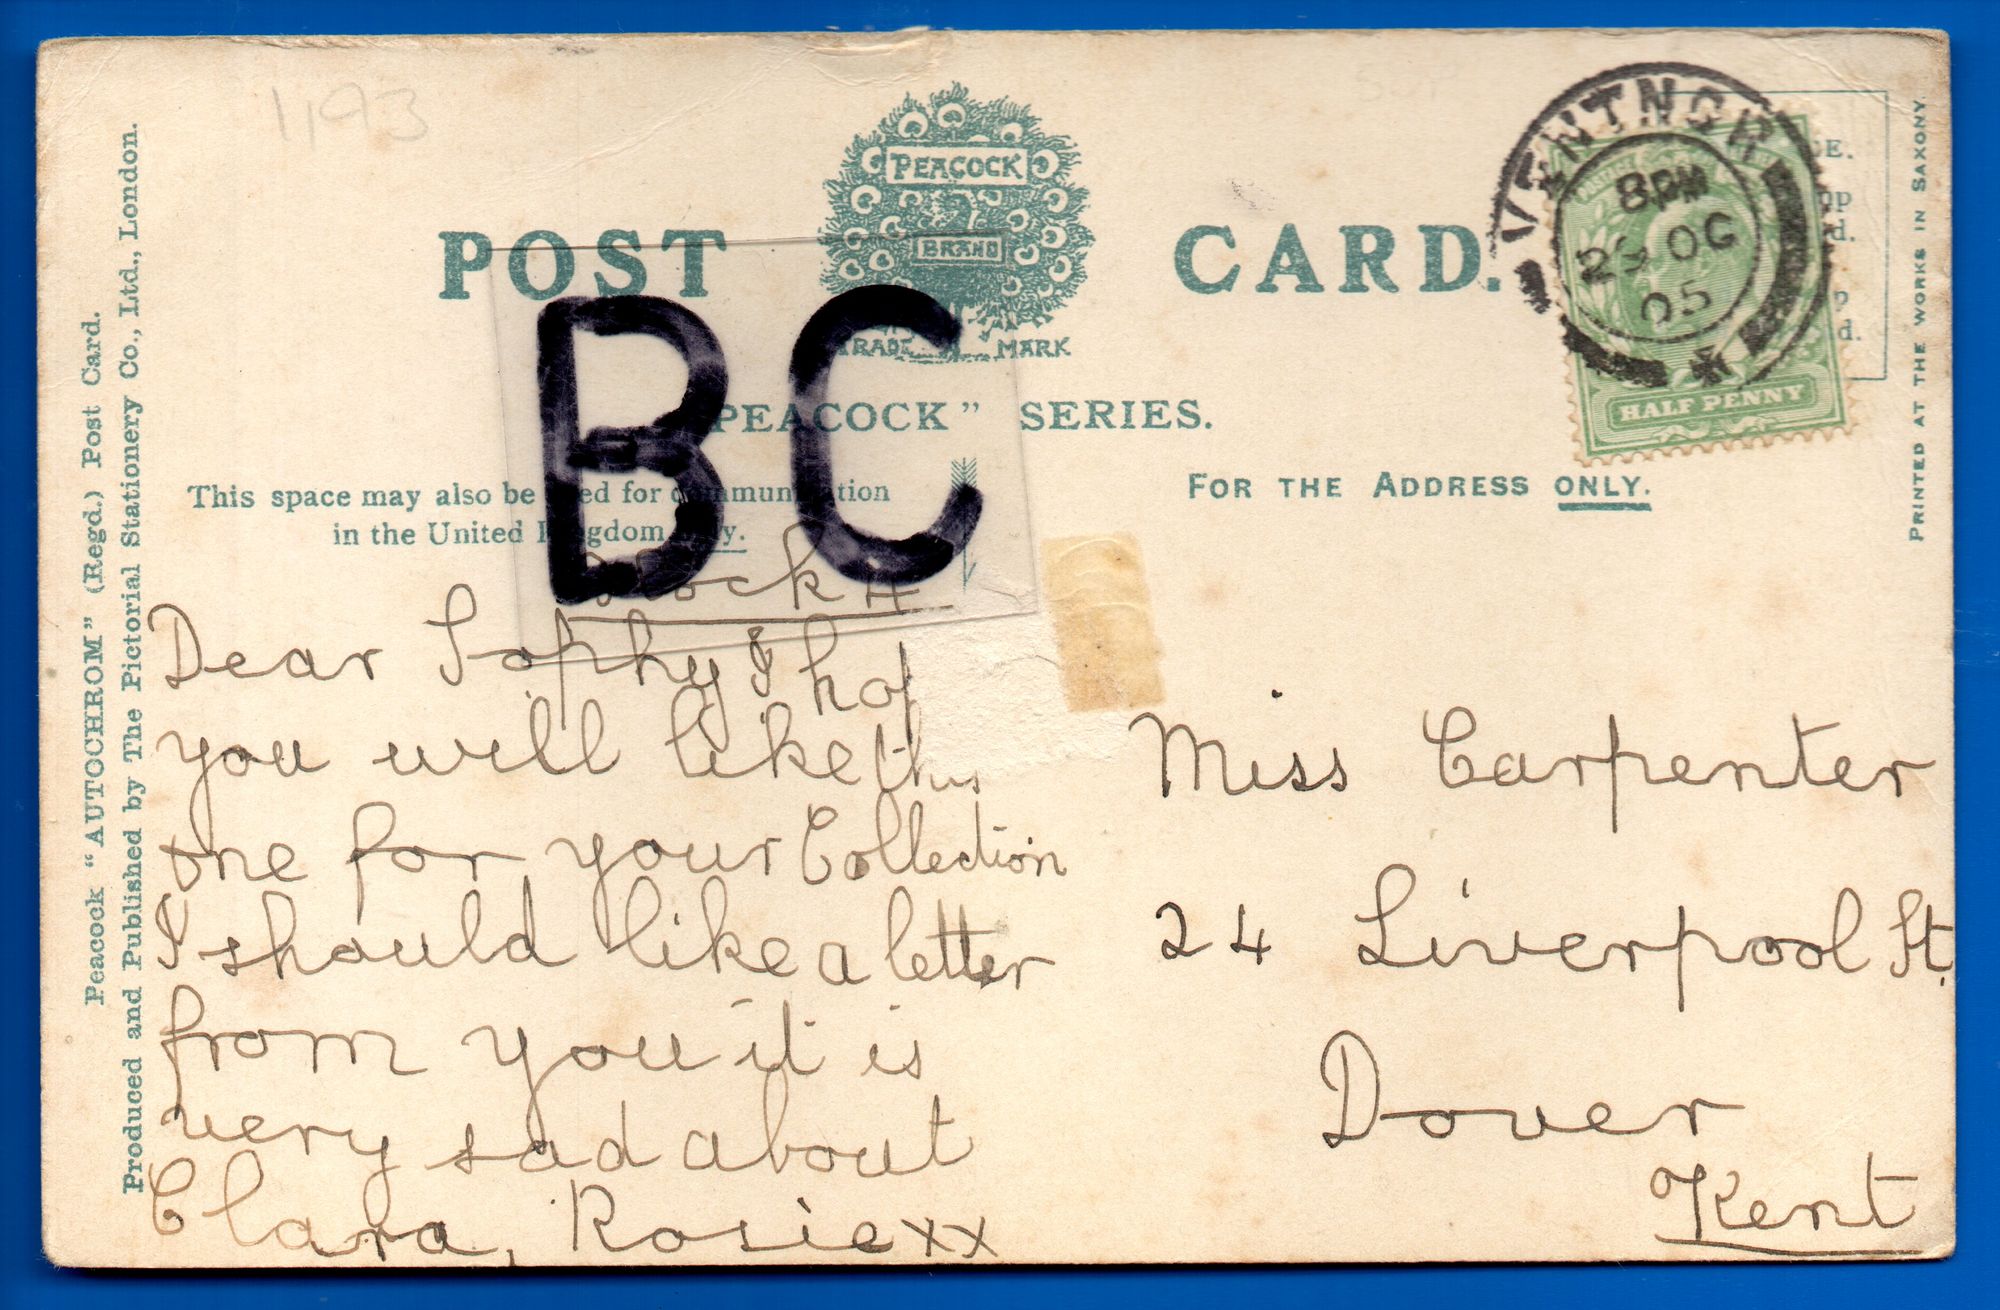 1,193
PEACOCK
BRAND
TRADE MARK
POST CARD.
"PEACOCK" SERIES.
BC
This space may also be used for communication
in the United Kingdom only.
FOR THE ADDRESS ONLY.
VENTNOR
8 PM
OC
05
HALF PENNY
PRINTED AT THE WORKS IN SAXONY.
Peacock "AUTOCHROM" (Regd.) Post Card.
Produced and Published by The Pictorial Stationery Co., Ltd., London.
Dear Sophy I hop
you will like this
one for your Collection
I should like a letter
from you it is
very sad about
Clara, Rosie xx
Miss Carpenter
24 Liverpool St.
Dover
Kent